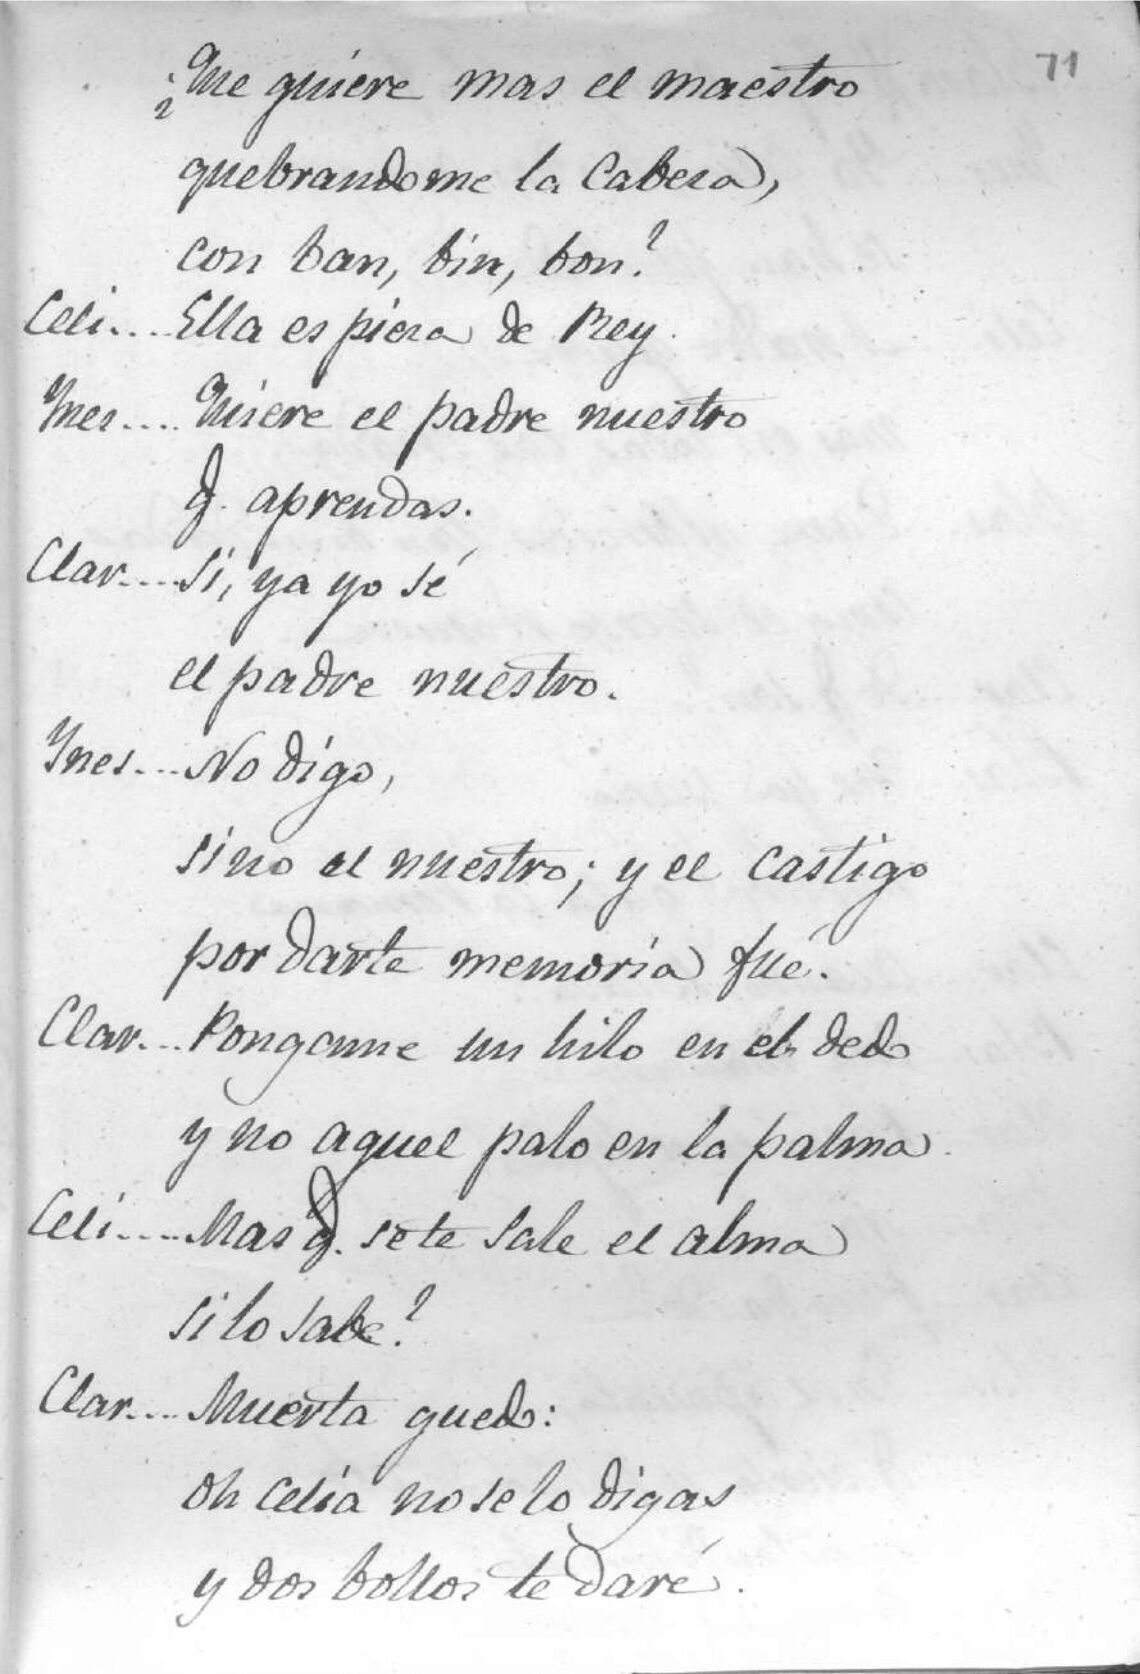 71
¿Que quiere mas el maestro
quebrandome la Cabeza,
con ban, bin, bon?
Celi.... Ella es pieza de Rey.
Ynes.... Quiere el padre nuestro
q. aprendas.
Clar.... Si, ya yo sé
el padre nuestro.
Ynes.... No digo,
sino el nuestro; y el castigo
por darte memoria fué.
Clar.... Pongame un hilo en el dedo
y no aquel palo en la palma.
Celi.... Mas q. se te sale el alma
si lo sabe?
Clar.... Muerta quedo:
oh Celia no se lo digas
y dos bollos te daré.